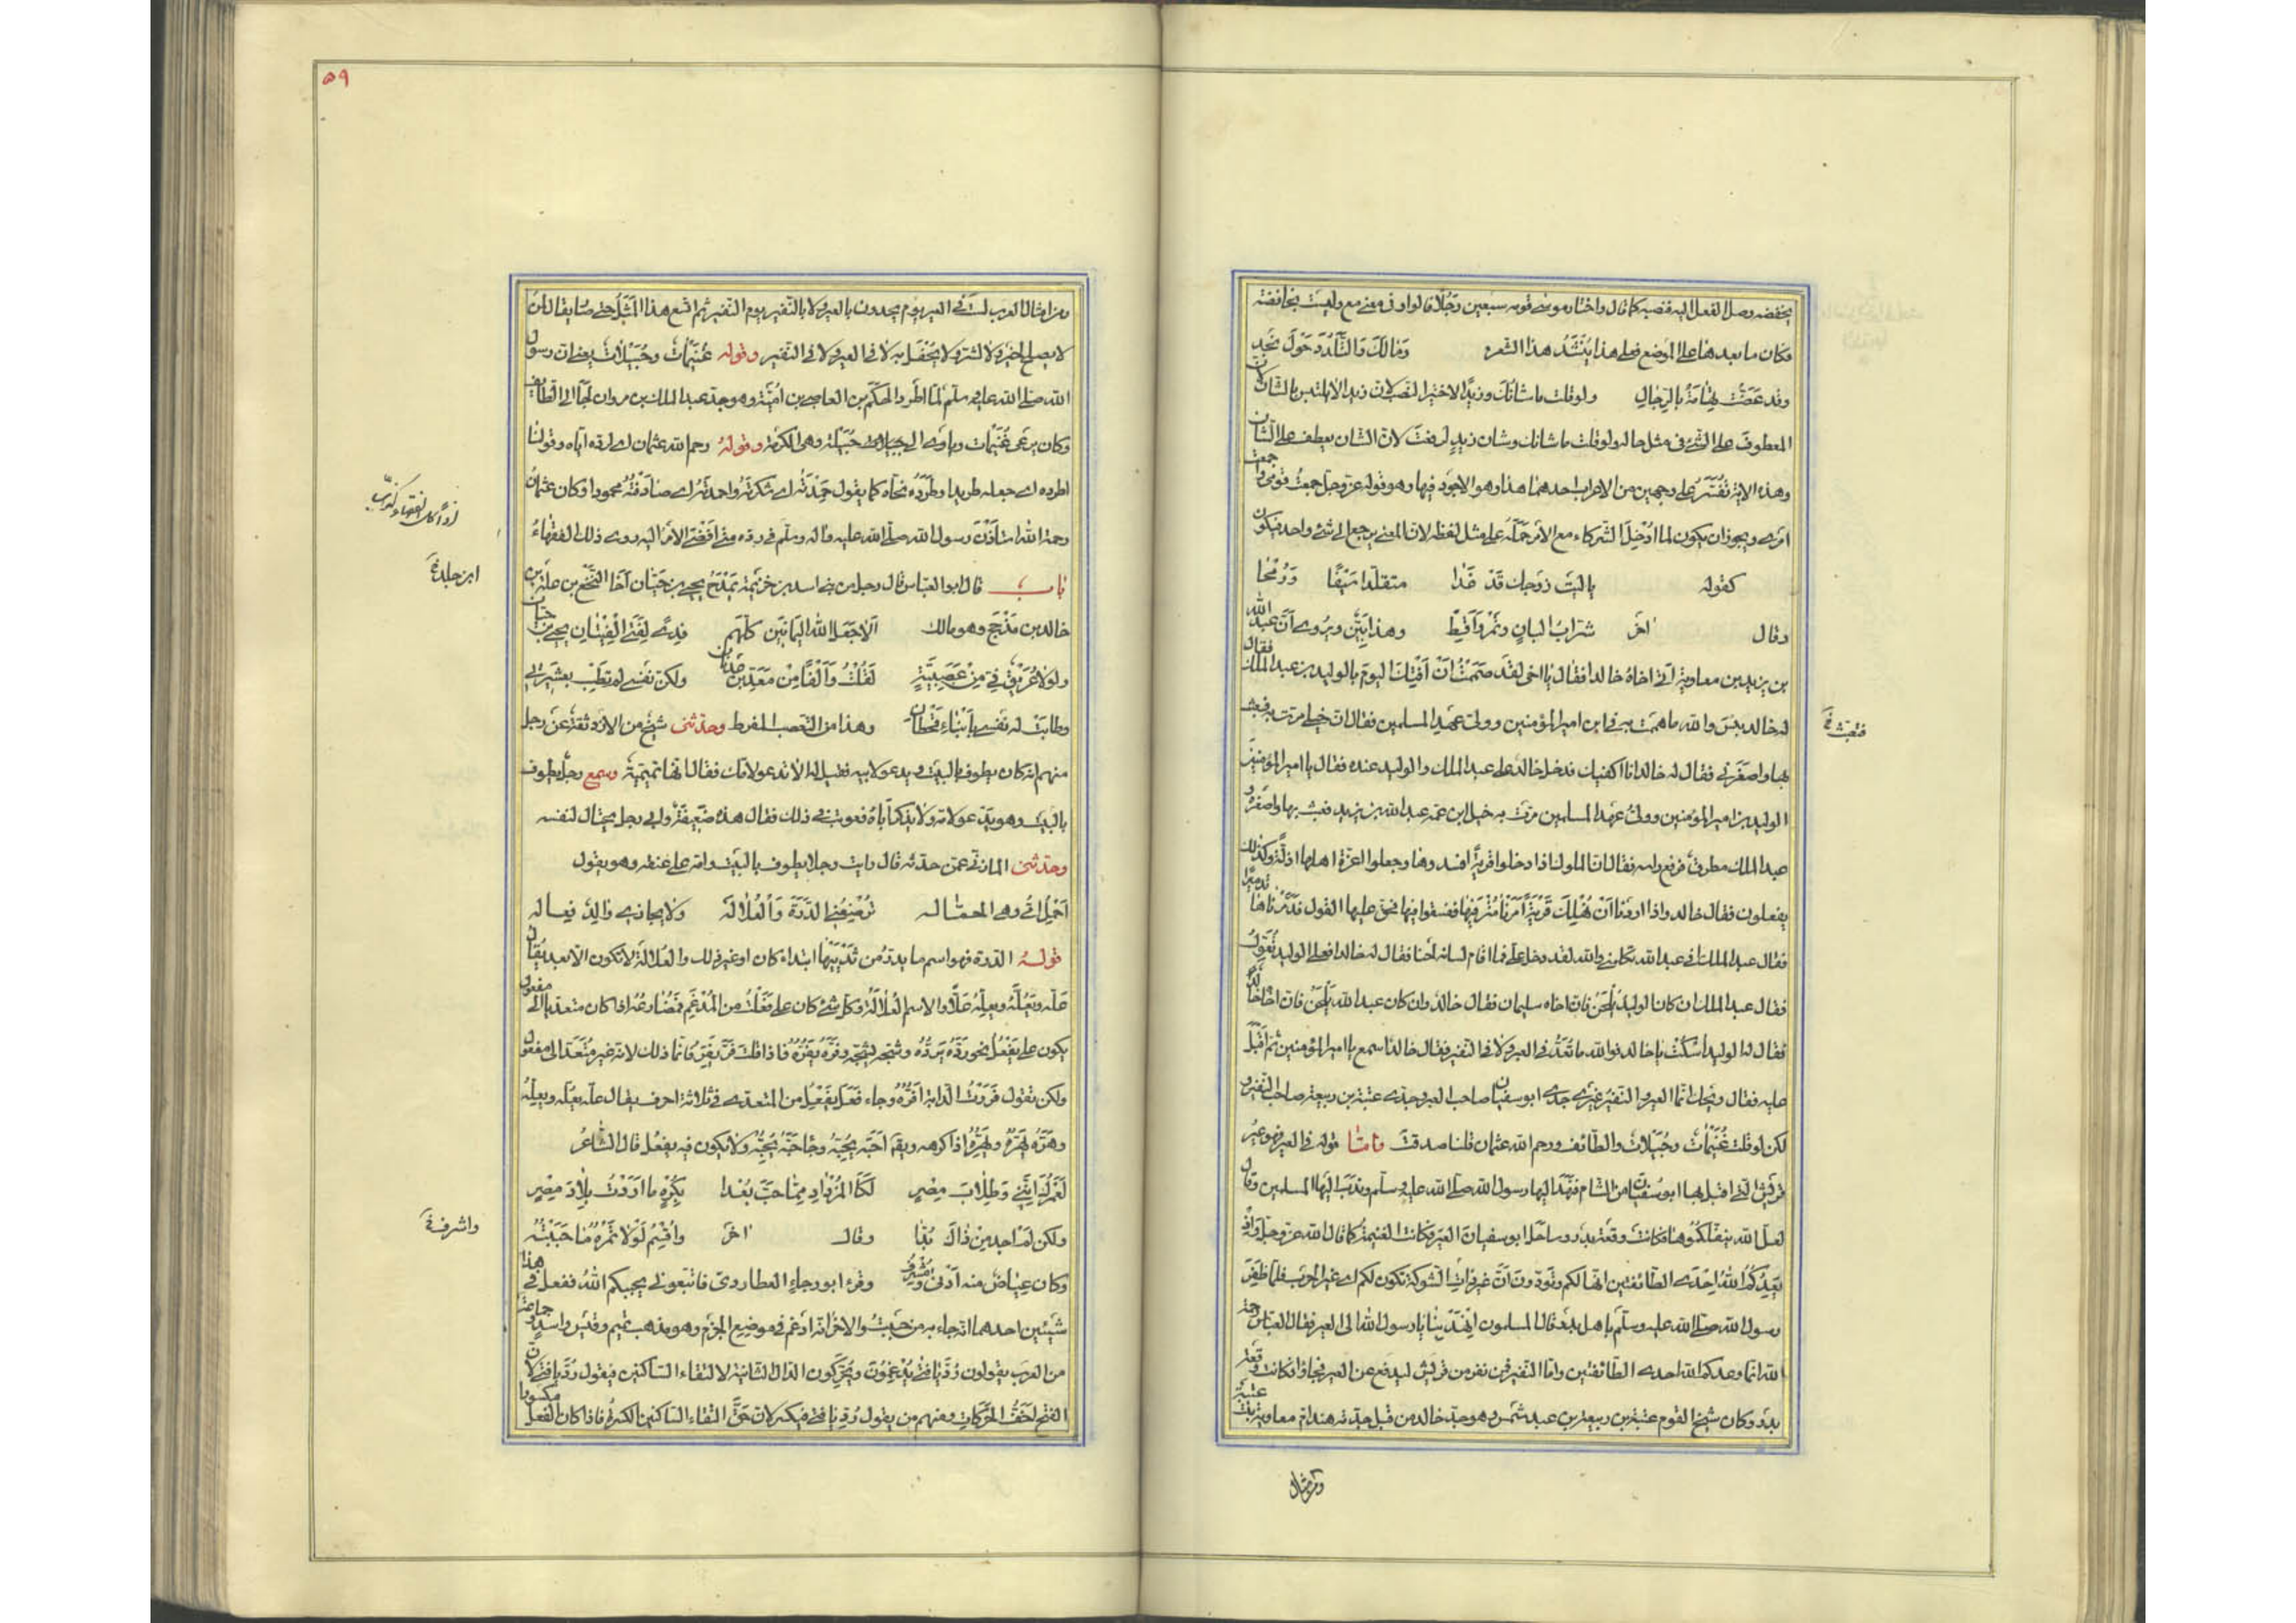 يخفضه وصل الفعل اليه فنصبه كما قال واختار موسى قومه سبعين رجلًا فالواو فى معنى مع وليست بخافضة
فكان ما بعدها على الموضع فعلى هذا يُنْشَدُ هذا الشعر وَمَا لَكَ وَالتَّلَدُّدَ حَوْلَ نَجْدٍ
وقد غَصَّتْ تِهَامَةُ بِالرِّجَالِ ولو قلت ما شَانُكَ وزيدًا لاختير النصب لان زيدا لا يلتبس بالشان لان
المعطوف على الشئ فى مثل حاله ولو قلت ما شانك وشان زيدٍ لرفعت لان الشان يعطف على الشان
وهذه الاية تُفَسَّرُ على وجهين من الاعراب احدهما هذا وهو الاجود فيها وهو قوله عز وجل جمعتُ قومى و جمعت
امرى ويجوز ان يكون لما ادخل الشركاء مع الامر حمله على مثل لفظه لان المعنى يرجع الى شئ واحد فيكون
كقوله ياليت زوجك قد غدا متقلدا سَيْفًا وَرُمْحَا
وقال اخر شراب البانٍ وتمْرٍ وَاَقِطْ وهذا بَيِّن ويُروى اَنَّ عبد الله
بن يزيد بن معاوية أتى اخاهُ خالدا فقال يا اخى لقد هممتُ انْ اَفْتِكَ اليومَ بالوليد بن عبد الملك فقال
له خالد بئس والله ما هممت به فى ابن امير المؤمنين وولى عهد المسلمين فقال ان خيلى مرت به فعبث
بها واصغرنى فقال له خالد انا اكفيك فدخل خالد على عبد الملك والوليد عنده فقال يا امير المؤمنين
الوليد بن امير المؤمنين وولىّ عهد المسلمين مرت به خيل ابن عمه عبد الله بن يزيد فعبث بها واصغره و
عبد الملك مطرق فرفع راسه فقال ان الملوك اذا دخلوا قرية افسدوها وجعلوا اعزة اهلها اذلة وكذلك
يفعلون فقال خالد واذا اردنا اَنْ نُهْلِكَ قَرْيَةً اَمَرْنَا مُتْرَفِيهَا ففسقوا فيها فحق عليها القول فَدَمَّرْنَاهَا تدميرا
فقال عبد الملك أفى عبد الله تكلمنى والله لقد دخل على فما اقام لسانه لحنا فقال له خالد افعلى الوليد تُعَوِّلُ
فقال عبد الملك ان كان الوليد يَلْحَنُ فان اخاه سليمان فقال خالد وان كان عبد الله يَلْحَنُ فان اخاه خالدٌ
فقال له الوليد اُسْكُتْ يا خالد فوالله ما تُعَدُّ فى العير ولا فى النفير فقال خالد اسمع يا امير المؤمنين ثم اَقْبَلَ
عليه فقال ويحك فما العير والنفير غيرى جدى ابو سفيان صاحب العير وجدى عتبة بن ربيعة صاحب النفير و
لكن لو قلت غُنَيْمَاتٌ وحُبَيْلَاتٌ والطائف ورحم الله عثمان قلنا صدقت وامّا قوله فى العير فهو عير
قريش التى اقبل بها ابو سفيان من الشام فنهد اليها رسول الله صلى الله عليه وسلم وندب اليها المسلمين وقال
لعل الله ينفّلكموها فكانت وقعة بدر وساحل ابو سفيان العير فكانت الغنيمة كما قال الله عز وجل واذ
يَعِدُكُمُ اللهُ اِحْدَى الطائفتين انها لكم وتودون اَنَّ غير ذات الشوكة تكون لكم اى غير الحرب فلما ظفر
رسول الله صلى الله عليه وسلم باهل بدر قال المسلمون اِنْهَدْ بنا يا رسول الله الى العير فقال العباس رحمه
الله انما وعدكم الله احدى الطائفتين واما النفير فمن نفر من قريش ليدفع عن العير فجاؤا فكانت وقعة
بدر وكان شيخ القوم عتبة بن ربيعة بن عبد شمس وهو جد خالد من قبل جدته هند ام معاوية بنت عتبة
فعبث
ومن امثال
٥٩
ومن امثال العرب لستَ فى العير يوم يحدون بالعير ولا بالنفير يوم النفير ثم اتسع هذا المثل حتى صار يقال لمن
لا يصلح لخير ولا لشر ولا يُحْفَل به لا فى العير ولا فى النفير وقوله غُنَيْمَاتٌ وحُبَيْلَاتٌ يعنى ان رسول
الله صلى الله عليه وسلم لما اطرد الحكم بن العاصى بن اميّة وهو جد عبد الملك بن مروان لجأ الى الطائف
وكان يرعى غُنَيْمَات وياوى الى حبيلة وهى الكرمة وقوله رحم الله عثمان اى لرده اياه وقولنا
اطرده اى جعله طريدا وطَرَدَهُ نحاه كما يقول حَمِدْتُه اى شكرته واحمدتُه اى صادفتُه محمودا وكان عثمان
رحمة الله استأذن رسول الله صلى الله عليه واله وسلم فى رده متى افضى الامر اليه روى ذلك الفقهاءُ
باب قال ابو العباس قال رجل من بنى اسد بن خزيمة يَمْدَحُ يحيى بن حَيَّان اَخَا النَّخَع بن عُلَة بن
خالد بن مَذْحِج وهو مالك اَلَا جَعَلَ اللهُ الْيَمَانِينَ كُلَّهُم فِدًى لِفَتَى الْفِتْيَانِ يحيى بن حيان
ولولا عُرَيْقٌ فِىَّ مِنْ عَصَبِيَّةٍ لَقُلْتُ وَاَلْفًا مِنْ مَعَدِّ بْنِ عَدْنَان ولكن نفسى لم تطب بعشيرتى
وطابَتْ له نفسى بِاَبْنَاءِ قَحْطَان وهذا من التعصب المفرط وحدثنى شيخ من الازد ثقة عن رجل
منهم انه كان يطوف بالبيت ويدعو لابيه فقيل له الا تدعو لامك فقال انها تَمِيمِيّة وسمع رجل يطوف
بالبيت وهو يدعو لامه ولا يذكر اَبَاهُ فعوتب فى ذلك فقال هذه ضعيفة وابى رجل يحتال لنفسه
وحدثنى المازنى عمن حدثه قال رايت رجلا يطوف بالبيت وامه على عنقه وهو يقول
اَحْمِلُ اُمِّى وهى الحمّاله تُرْضِعُنِى الدِّرَّةَ وَالْعُلَالَه ولا يجازى والدٌ فِعاله
قوله الدرة فهو اسم ما يدرّ من ثدييها ابتداء كان او غير ذلك والعُلَالَة لا تكون الا بعد يقال
عَلَّه يَعُلُّه ويعِلّه عَلًّا والاسم العُلالَة وكل شئ كان على فَعَلْتُ من المُدْغَمِ فمُضَارعُه اذا كان متعديا الى مفعول
يكون على يَفْعُلُ نحو رَدَّهُ يَرُدُّه وشجه يشجّه وفَرَّهُ يَفُرُّه فاذا قلت فَرَّ يَفِرُّ فانما ذلك لانه غير مُتَعَدّ الى مفعول
ولكن تقول فَرَرْتُ الدابة اَفُرُّه وجاء فَعَلَ يَفْعِل من المتعدى فى ثلاثة احرف يقال علّه يَعُلّه ويعِلّه
وهَرَّه يَهُرُّه ويَهِرُّه اذا كرهه ويقال اَحَبَّه يُحِبُّه وجاء حَبَّه يَحِبُّه ولا يكون فيه يفعُل قال الشاعرُ
لَعَمْرُكَ اِنَّنِى وَطِلَابَ مِصْرٍ لَكَا لْمُزْدَادِ مِمَّا حَبَّ بُعْدا بِكُرْهٍ مَا اَرَدْتُ بِلَادَ مِصْرٍ
ولكن لم اجد من ذاك بُدّا وقال اخر وَاُقْسِمُ لَوْلَا تَمْرُهُ مَا حَبَبْتُهُ
وكان عِيَاضٌ منه اَدْنَى ومُشْرِقُ وقرء ابو رجاء العطاردى فاتبعونى يحببكم اللهُ ففعل فى هذا
شيئين احدهما انه جاء به من حَبَبْتُ والاخر انه ادغم فى موضع الجزم وهو مذهب تميم وقيس واسد وجماعة
من العرب يقولون رُدَّ يا فتى يُدْغِمُون ويُحَرِّكون الدال الثانية لالتقاء الساكنين فيقول رُدَّ يا فتى لان
الفتح اخفّ الحركات ومنهم من يقول رُدِّ يا فتى فيكسر لان حَقَّ التقاء الساكنين الكسر فاذا كان الفعل مكسورا
ابن جلد
واشرف